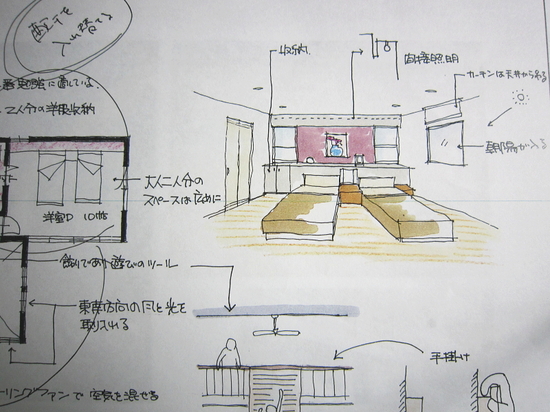 入れ替える
収納
間接照明
カーテンは天井から吊る
に適している。
2人分の洋服収納
朝陽が入る
大人二人分の
スペースは広めに
洋室D 10帖
飾りであり遊びのツール
東南方向の風と光を
取り入れる
手掛け
リングファンで空気を混ぜる